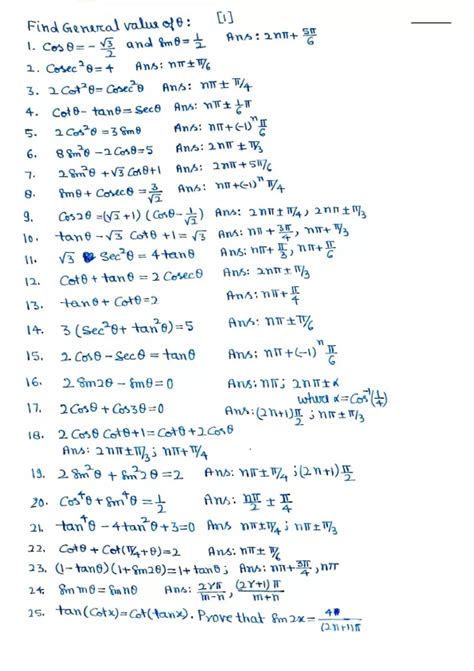 Find General value of θ: [1]
1. Cosθ = -√3/2 and Sinθ = 1/2 Ans: 2nπ + 5π/6
2. Cosec²θ = 4 Ans: nπ ± π/6
3. 2Cot²θ = Cosec²θ Ans: nπ ± π/4
4. Cotθ - tanθ = Secθ Ans: nπ ± 1/6 π
5. 2Cos²θ = 3Sinθ Ans: nπ + (-1)ⁿ π/6
6. 8Sin²θ - 2Cosθ = 5 Ans: 2nπ ± π/3
7. 2Sin²θ + √3 Cosθ + 1 Ans: 2nπ + 5π/6
8. Sinθ + Cosecθ = 3/√2 Ans: nπ + (-1)ⁿ π/4
9. Cos2θ = (√3+1) (Cosθ - 1/√2) Ans: 2nπ ± π/4, 2nπ ± π/3
10. tanθ - √3 Cotθ + 1 = √3 Ans: nπ + 3π/4, nπ + π/3
11. √3 Sec²θ = 4tanθ Ans: nπ + π/3, nπ + π/6
12. Cotθ + tanθ = 2Cosecθ Ans: 2nπ ± π/3
13. tanθ + Cotθ = 2 Ans: nπ + π/4
14. 3(Sec²θ + tan²θ) = 5 Ans: nπ ± π/6
15. 2Cosθ - Secθ = tanθ Ans: nπ + (-1)ⁿ π/6
16. 2Sin2θ - Sinθ = 0 Ans: nπ; 2nπ ± α
where α = Cos⁻¹(1/4)
17. 2Cosθ + Cos3θ = 0 Ans: (2n+1)π/2; nπ ± π/3
18. 2Cosθ Cotθ + 1 = Cotθ + 2Cosθ
Ans: 2nπ ± π/3; nπ + π/4
19. 2Sin²θ + Sin²2θ = 2 Ans: nπ ± π/4; (2n+1)π/2
20. Cos⁴θ + Sin⁴θ = 1/2 Ans: nπ/2 ± π/4
21. tan⁴θ - 4tan²θ + 3 = 0 Ans: nπ ± π/4; nπ ± π/3
22. Cotθ + Cot(π/4 + θ) = 2 Ans: nπ ± π/6
23. (1 - tanθ)(1 + Sin2θ) = 1 + tanθ; Ans: nπ + 3π/4, nπ
24. Sin mθ = Sin nθ Ans: 2rπ/m-n, (2r+1)π/m+n
25. tan(Cotx) = Cot(tanx). Prove that Sin2x = 4/(2n+1)π